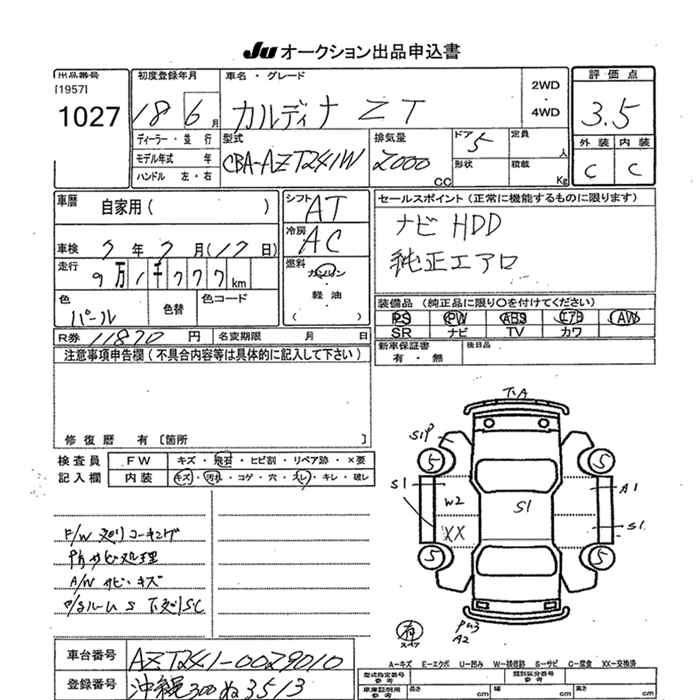 Ju オークション出品申込書
出品番号 初度登録年月 車名・グレード 評価点
[1957]
1027 18 6月 カルディナ ZT 2WD ・ 4WD 3.5
ディーラー・並行 型式 排気量 ドア 定員 外装 内装
モデル年式 年 CBA-AZT241W 2000 CC 5 人 C C
ハンドル 左・右 形状 積載 Kg
車歴 自家用( ) シフト AT セールスポイント(正常に機能するものに限ります)
冷房 AC ナビ HDD
車検 7年7月(17日) 純正エアロ
走行 9万1千777km 燃料 ガソリン・軽油・( )
色 パール 色替 色コード 装備品(純正品に限り○を付けてください)
PS PW ABS エアB AW
R券 11870円 名変期限 月 日 SR ナビ TV カワ
注意事項申告欄(不具合内容等は具体的に記入して下さい) 新車保証書 有・無 後日品
修復歴 有 [箇所 ]
検査員 FW キズ・飛石・ヒビ割・リペア跡・×要
記入欄 内装 キズ・汚れ・コゲ・穴・スレ・キレ・破レ
F/W 廻りコーキング
サビ処理
A/W サビ・キズ
ルーム S 下廻りSC
下A
S1P
5 5
S1 A1
W2 S1
XX S1
5 5
有
スペア
A2
車台番号 AZT241-0029010
登録番号 沖縄300ぬ3513
A-キズ E-エクボ U-凹み W-補修跡 S-サビ C-腐食 XX-交換済
型式指定番号 類別区分番号
参考 参考
参考 長さ cm 幅 cm 高さ cm